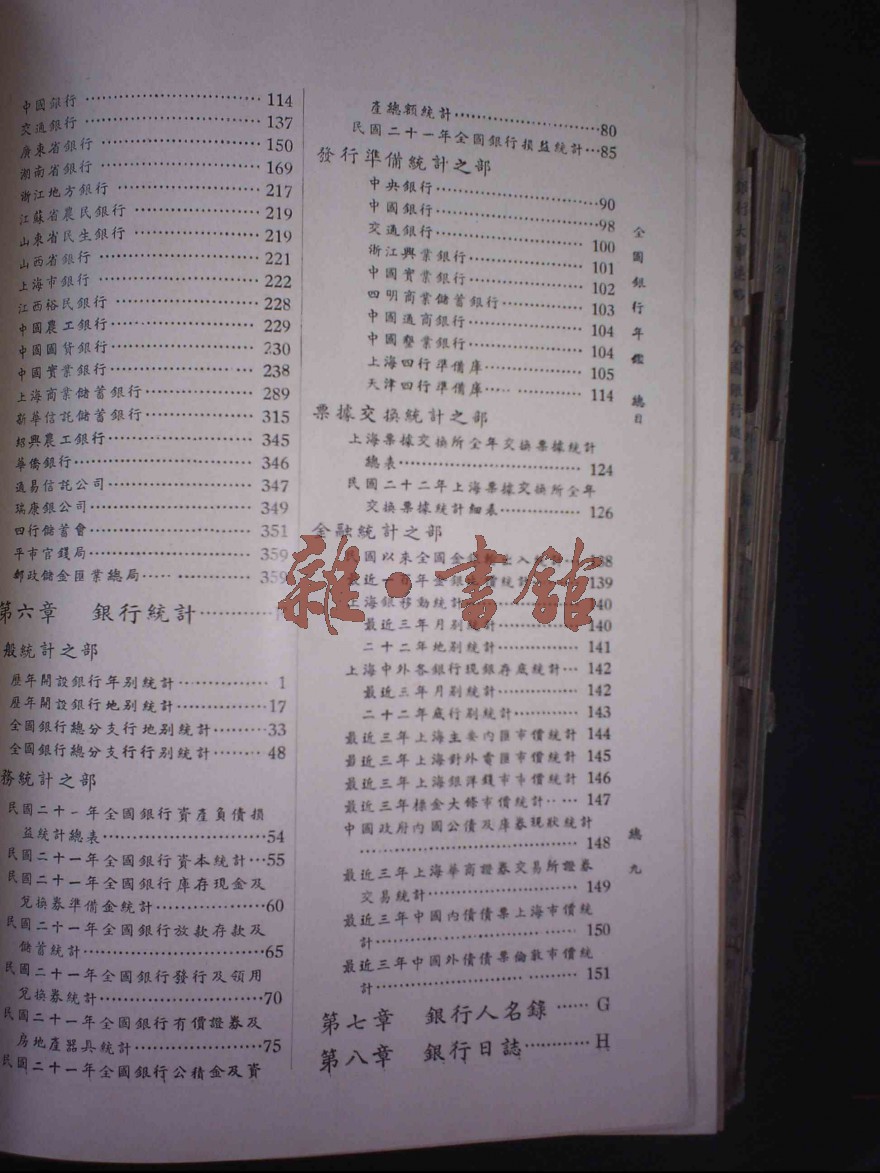 中國銀行 114
交通銀行 137
廣東省銀行 150
湖南省銀行 169
浙江地方銀行 217
江蘇省農民銀行 219
山東省民生銀行 219
山西省銀行 221
上海市銀行 222
江西裕民銀行 228
中國農工銀行 229
中國國貨銀行 230
中國實業銀行 238
上海商業儲蓄銀行 289
新華信託儲蓄銀行 315
紹興農工銀行 345
華僑銀行 346
通易信託公司 347
瑞康銀公司 349
四行儲蓄會 351
平市官錢局 359
郵政儲金匯業總局 359
第六章 銀行統計
般統計之部
歷年開設銀行年別統計 1
歷年開設銀行地別統計 17
全國銀行總分支行地別統計 33
全國銀行總分支行行別統計 48
務統計之部
民國二十一年全國銀行資產負債損
益統計總表 54
民國二十一年全國銀行資本統計 55
民國二十一年全國銀行庫存現金及
兌換券準備金統計 60
民國二十一年全國銀行放款存款及
儲蓄統計 65
民國二十一年全國銀行發行及領用
兌換券統計 70
民國二十一年全國銀行有價證券及
房地產器具統計 75
民國二十一年全國銀行公積金及資
產總額統計 80
民國二十一年全國銀行損益統計 85
發行準備統計之部
中央銀行 90
中國銀行 98
交通銀行 100
浙江興業銀行 101
中國實業銀行 102
四明商業儲蓄銀行 103
中國通商銀行 104
中國墾業銀行 104
上海四行準備庫 105
天津四行準備庫 114
票據交換統計之部
上海票據交換所全年交換票據統計
總表 124
民國二十二年上海票據交換所全年
交換票據統計細表 126
金融統計之部
民國以來全國金銀出入統計 138
最近一百年金銀比價統計 139
上海銀移動統計 140
最近三年月別統計 140
二十二年地別統計 141
上海中外各銀行現銀存底統計 142
最近三年月別統計 142
二十二年底行別統計 143
最近三年上海主要內匯市價統計 144
最近三年上海對外電匯市價統計 145
最近三年上海銀洋錢市市價統計 146
最近三年標金大條市價統計 147
中國政府內國公債及庫券現狀統計
148
最近三年上海華商證券交易所證券
交易統計 149
最近三年中國內債債票上海市價統
計 150
最近三年中國外債債票倫敦市價統
計 151
第七章 銀行人名錄 G
第八章 銀行日誌 H
全國銀行年鑑 總目
總九
雜·書館